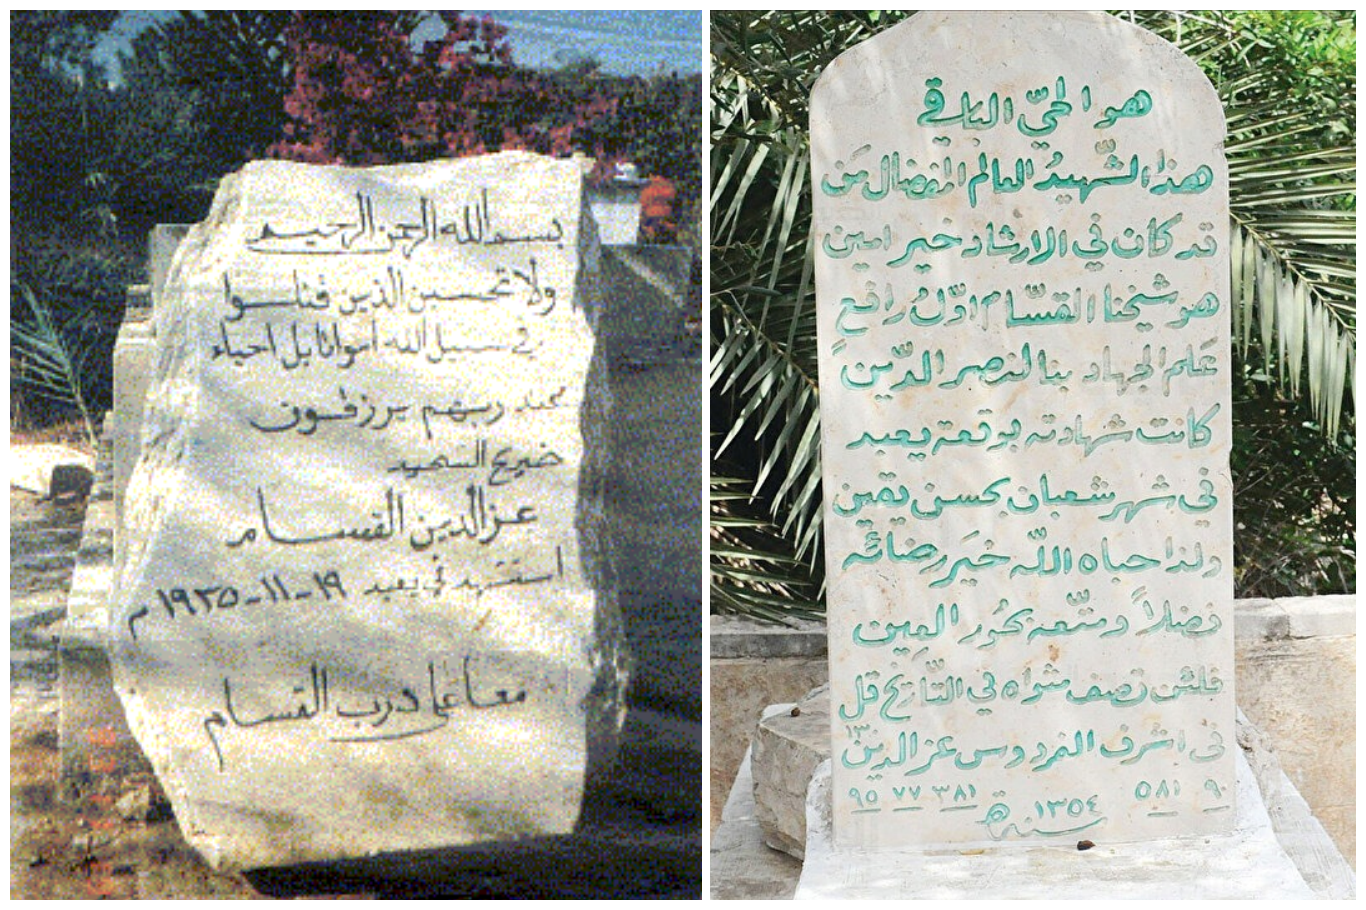 بسم الله الرحمن الرحيم
ولا تحسبن الذين قتلوا
في سبيل الله أمواتا بل احياء
عند ربهم يرزقون
ضريح الشهيد
عز الدين القسام
استشهد في يعبد ١٩-١١-١٩٣٥ م
معا على درب القسام
هو الحيّ الباقي
هذا الشّهيدُ العالم المفضال مَن
قد كان في الارشاد خير امين
هو شيخنا القسّام اوّلُ رافعٍ
عَلم الجهاد بنا لنصر الدّين
كانت شهادته بوقعة يعبد
في شهر شعبان بحسن يقين
ولذا حباه اللّه خيَر رضائه
فضلاً ومتّعه بحُور العِين
فلئن تصف مثواه في التّاريخ قل
في اشرف الفردوس عز الدين
٩٠ ٥٨١ ٣٨١ ٧٧ ٩٥
سنة ١٣٥٤ هـ